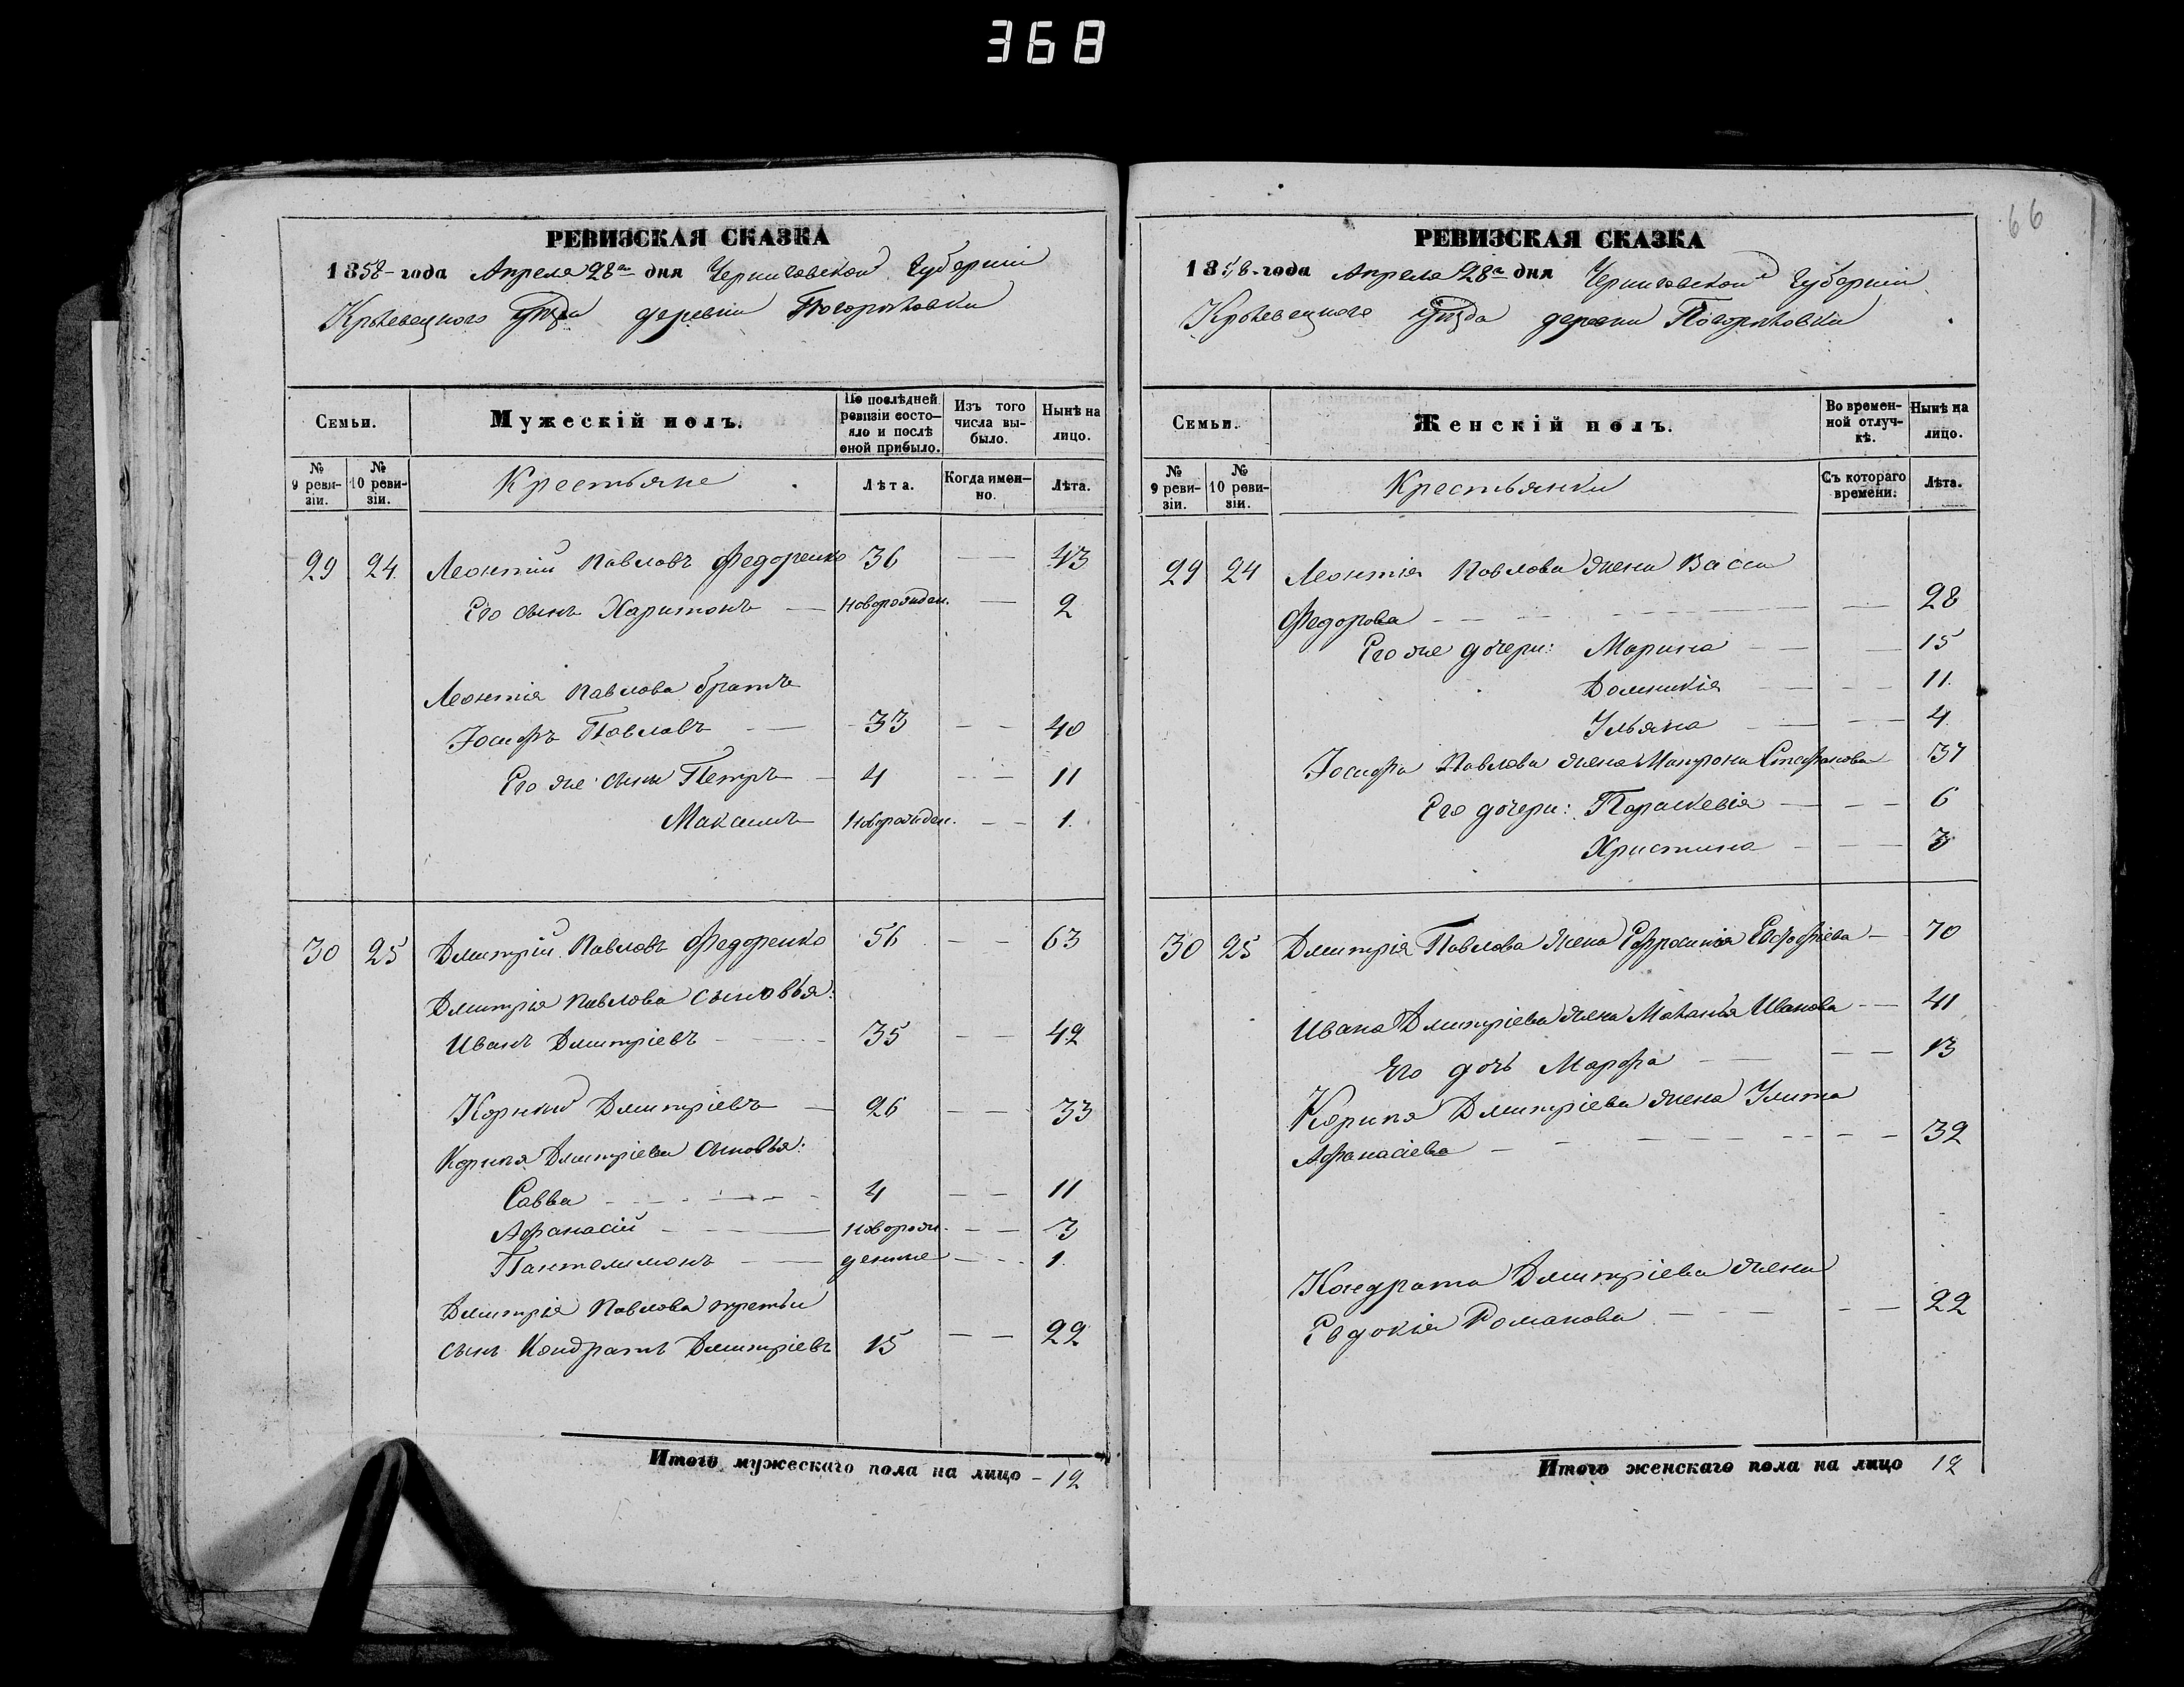 368
66
РЕВИЗСКАЯ СКАЗКА
1858 года Апреля 28го дня Черниговской Губерніи
Кролевецкого уѣзда деревни Погорѣловки
Семьи.
Мужескій полъ.
По послѣдней ревизіи состо-
яло и послѣ
оной прибыло.
Изъ того
числа вы-
было.
Нынѣ на
лицо.
№
9 реви-
зіи.
№
10 реви-
зіи.
Крестьяне
Лѣта.
Когда имен-
но.
Лѣта.
29 24 Леонтій Павловъ Федоренко 36 — — 43
Его сынъ Харитонъ — новорожден. — 2
Леонтія Павлова братъ
Іосифъ Павловъ — 33 — — 40
Его же сыны Петръ — 4 — — 11
Максимъ новорожден. — — 1.
30 25 Дмитрій Павловъ Федоренко 56 — — 63
Дмитрія Павлова сыновья:
Иванъ Дмитріевъ — 35 — — 42
Корній Дмитріевъ — 26 — — 33
Корнія Дмитріева сыновья:
Савва — 4 — — 11
Афанасій — новорож- — — 3
Пантелимонъ — денные — — 1.
Дмитрія Павлова третьи
сынъ Кондратъ Дмитріевъ 15 — — 22
Итого мужескаго пола на лицо — 12
РЕВИЗСКАЯ СКАЗКА
1858 года Апреля 28го дня Черниговской Губерніи
Кролевецкого уѣзда деревни Погорѣловки
Семьи.
Женскій полъ.
Во времен-
ной отлуч-
кѣ.
Нынѣ на
лицо.
№
9 реви-
зіи.
№
10 реви-
зіи.
Крестьянки
Съ котораго
времени.
Лѣта.
29 24 Леонтія Павлова жена Васса
Федорова — — 28
Его же дочери: Марина — — 15
Домникія — — 11.
Ульяна — — 4
Іосифа Павлова жена Матрона Стефанова 37
Его дочери: Параскевія — — 6
Христина — — 3
30 25 Дмитрія Павлова жена Ефросинія — 70
Ивана Дмитріева жена Маланья Иванова — 41
Его дочь Марфа — — 13
Корнія Дмитріева жена Улита
Афанасіева — — 32
Кондрата Дмитріева жена
Евдокія Романова — — 22
Итого женскаго пола на лицо 12